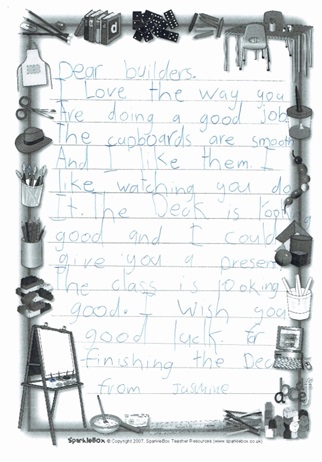 Dear builders.
I Love the way you
Are doing a good job
The cupboards are smooth
And I like them. I
like watching you do
It. The Deck is
good and I could
give you a present
The class is ooking
good. I wish you
good luck. for
finishing the Dec
from Jasmine
SparkleBox © Copyright 2007, SparkleBox Teacher Resources (www.sparklebox.co.uk)